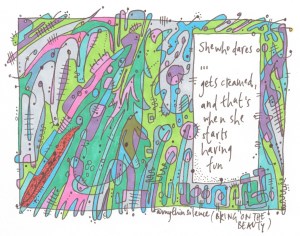 She who dares
...
gets creamed,
and that's
when she
starts
having
fun
(BRING ON THE
BEAUTY)